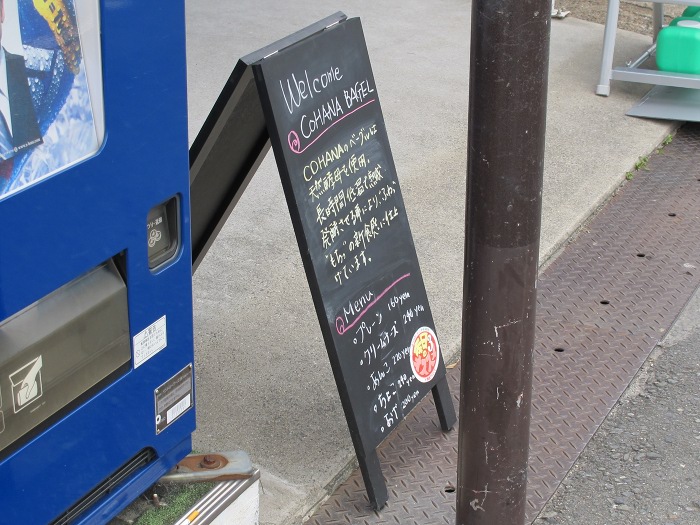 Welcome
COHANA BAGEL
COHANAのベーグルは
天然酵母を使用。
長時間低温で熟成
発酵させる事により"ふわ"
"もち"の新食感に仕上
げています。
Menu
プレーン 160yen
クリームチーズ 240 yen
あんこ 220 yen
ちょこ 240 yen
200 yen